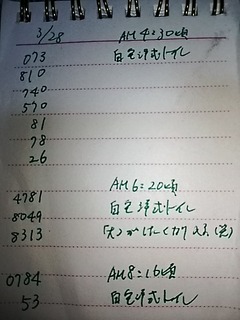 3/28 AM 4:30頃
073 自宅洋式トイレ
810
740
570
81
78
26
4781 AM 6:20頃
8049 自宅洋式トイレ
8313
0784 AM 8:16頃
53 自宅洋式トイレ